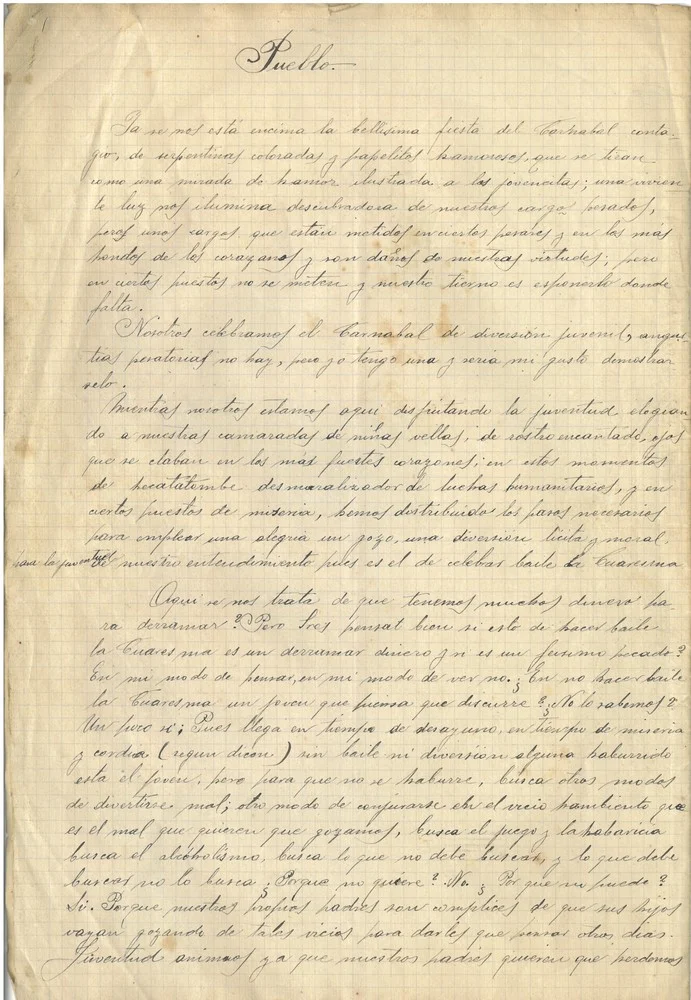 Pueblo.
Ya se nos está encima la bellisima fiesta del Carnabal conta-
gio, de serpentinas coloradas y papelitos hamorosos, que se tiran
como una mirada de hamor ilustrada a las jovencitas; una vivien
te luz nos ilumina descubradora de nuestros cargos pesados,
peros unos cargos que estan metidos en ciertos pesares y en los más
hondos de los corazanos y son daños de nuestras virtudes; pero
en ciertos puestos no se meten y nuestro tierno es esponerlo donde
falta.
Nosotros celebramos el Carnabal de diversión juvenil, angus-
tias no hay, pero yo tengo una y seria mi gusto demostrar
selo.
Mientras nosotros estamos aqui disfrutando la juventud elogian
do a nuestras camaradas de niñas vellas, de rostro encantado, ojos
que se claban en los más fuertes corazones; en estos momentos
de hecatatombe desmuralizador de luchas humanitarios, y en
ciertos puestos de miseria, hemos distribuido los pasos necesarios
para emplear una alegria un gozo, una diversión licita y moral,
para la juventud de nuestro entendimiento pues es el de celebar baile la Cuaresma
Aqui se nos trata de que tenemos muchos dinero pa
ra derramar? Pero Sres pensat bien si esto de hacer baile
la Cuaresma es un derrumar dinero y ni es un pecado?
En mi modo de pensar, en mi modo de ver no. ¿En no hacer baile
la Cuaresma un joven que piensa que discurre? ¿No lo sabemos?
Un poco si; Pues llega en tiempo de desayuno, en tiempo de miseria
y cordia (segun dicen) sin baile ni diversión alguna haburrido
esta el joven, pero para que no se haburre, busca otros modos
de divertirse mal; otro modo de conjurarse en el vicio hambiento que
es el mal que quieren que gozamos, busca el juego y la habaricia
busca el alcóholismo, busca lo que no debe buscar, y lo que debe
buscar no lo busca ¿Porque no quiere? No. ¿Por que no puede?
Si. Porque nuestros propios padres son complices de que sus hijos
vayan gozando de tales vicios para darles que pensar otros dias.
Juventud animaos ya que nuestros padres quieren que perdemos